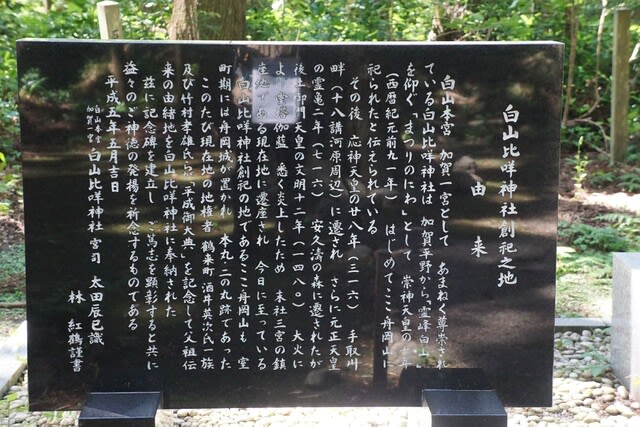 白山比咩神社創祀之地
由来
白山本宮 加賀一宮として あまねく尊崇され
ている白山比咩神社は 加賀平野から、霊峰白山
を仰ぐ「まつりのにわ」として 崇神天皇の
(西暦紀元前九一年) はじめてここ舟岡山に
祀られたと伝えられている
その後 応神天皇の廿八年(三一六) 手取川
畔(十八講河原周辺)に遷され さらに元正天皇
の霊亀二年(七一六) 安久濤の森に遷されたが
後土御門天皇の文明十二年(一四八〇) 大火に
より 堂塔伽藍 悉く炎上したため 末社三宮の鎮
座地である現在地に遷座され 今日に至っている
白山比咩神社創祀の地であるここ舟岡山も 室
町期には舟岡城が置かれ 本丸、二の丸跡であった
このたび現在地の地権者 鶴来町 酒井英次氏一族
及び竹村孝雄氏ら「平成御大典」を記念して父祖伝
来の由緒地を白山比咩神社に奉納された
茲に記念碑を建立し ご篤志を顕彰すると共に
益々のご神徳の発揚を祈念するものである
平成五年五月吉日
白山本宮
加賀一宮 白山比咩神社 宮司 太田辰巳識
林 紅鶴謹書